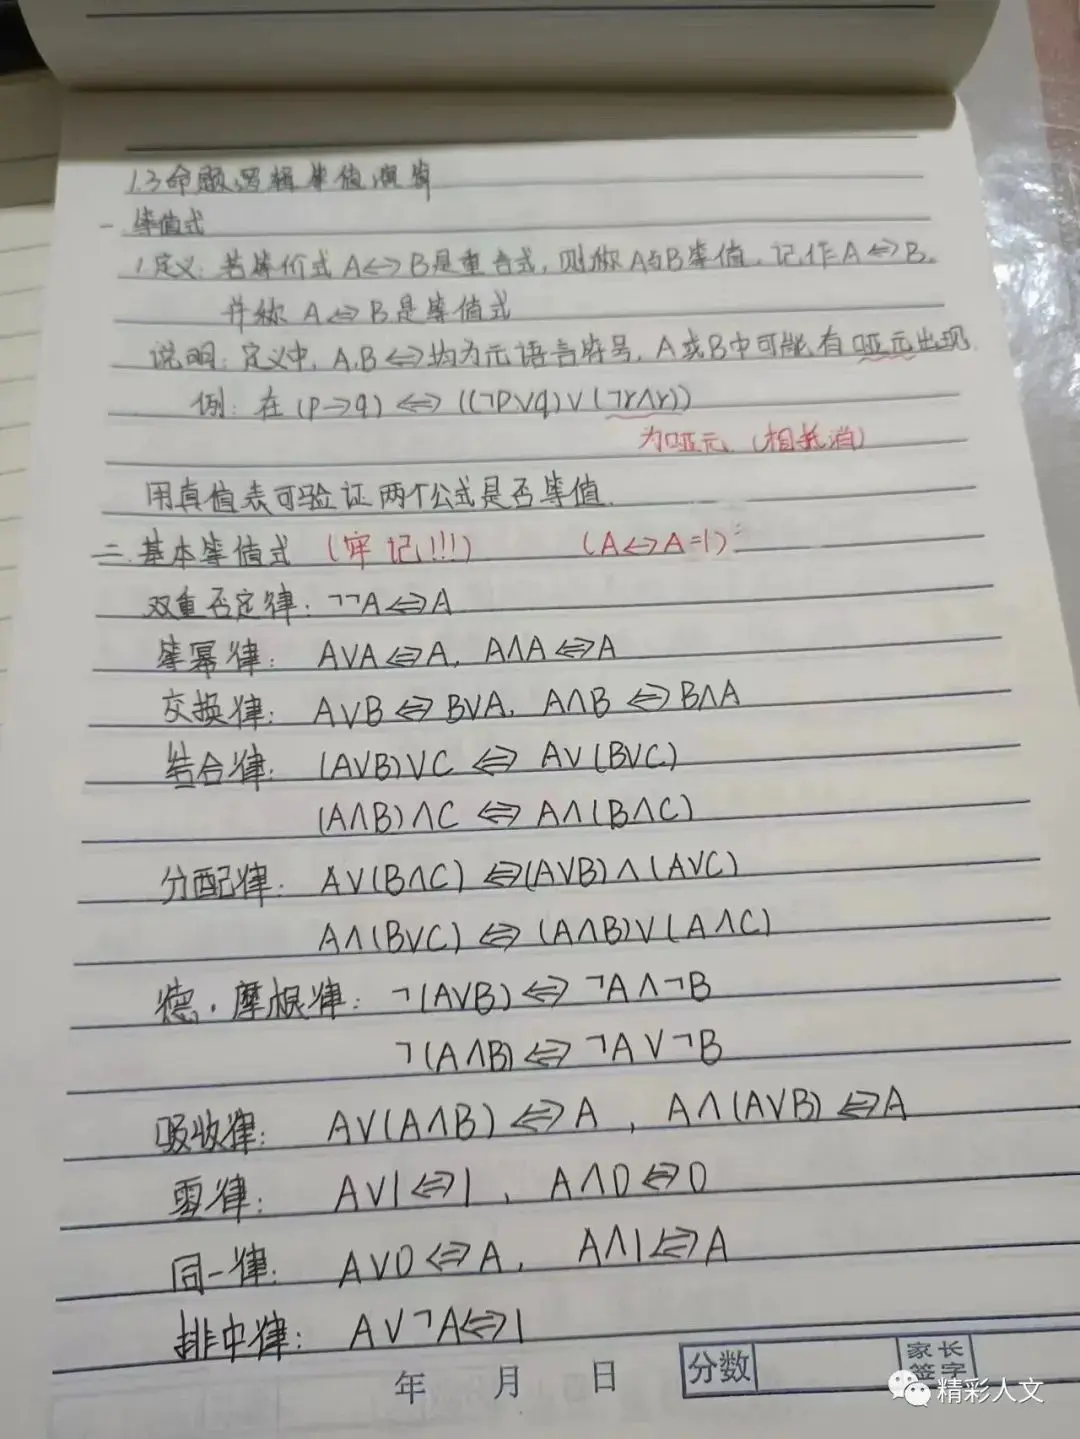 1.3命题逻辑等值演算
一.等值式
1.定义:若等价式A↔B是重言式,则称A与B等值,记作A⇔B,
并称A⇔B是等值式
说明:定义中,A,B⇔均为元语言符号,A或B中可能有哑元出现.
例:在(p→q)⇔((¬p∨q)∨(¬r∧r))
为哑元(相抵消)
用真值表可验证两个公式是否等值.
二.基本等值式 (牢记!!!) (A↔A=1)
双重否定律:¬¬A⇔A
等幂律: A∨A⇔A, A∧A⇔A
交换律: A∨B⇔B∨A, A∧B⇔B∧A
结合律: (A∨B)∨C⇔A∨(B∨C)
(A∧B)∧C⇔A∧(B∧C)
分配律: A∨(B∧C)⇔(A∨B)∧(A∨C)
A∧(B∨C)⇔(A∧B)∨(A∧C)
德·摩根律: ¬(A∨B)⇔¬A∧¬B
¬(A∧B)⇔¬A∨¬B
吸收律: A∨(A∧B)⇔A, A∧(A∨B)⇔A
零律: A∨1⇔1, A∧0⇔0
同一律: A∨0⇔A, A∧1⇔A
排中律: A∨¬A⇔1
年 月 日 分数 家长签字
精彩人文